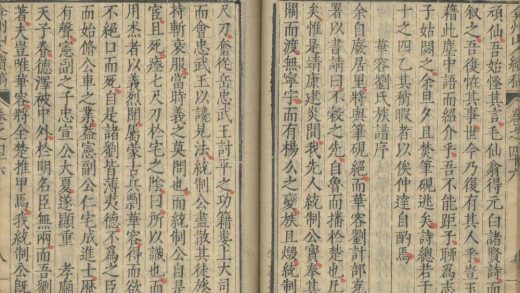 頑仙吾始怪其言毛仙翁得元白諸賢詩而
敘之吾復恠其事世今乃復有其人乎吾豈
藉此塵中語而紹介乎吾不能距子聊為志
子姑闕之余旦夕且焚筆硯逃矣詩總若干
十之四乙其稍暇者以俟仲達自酌焉
華容劉氏族譜序
余自廢居里將與筆硯絕而華容劉計部
署以書請曰不穀之先自魯而播於楚也凡
矣惟是靖康建炎間我先人統制公寔奉其
關而渡無寧宇而有楊么之變族且燬統制
尺刃奮從岳忠武王討平之功籍要上大司
而會忠武王以讒見法統制公盡散其徒旅
持斬衰服當時義之莫問也而統制公自是
宦且死瘞七尺刀於宅之陰曰所以識也而
用杰者以義烈聞屬蒙古兵剽華容得而欲
不絕口而死自是諸劉皆薄夷德不為之臣
而始脩公車之業蓋憲副公仁宅成進士歷
有聲憲副之子忠宣公大夏遂顯重 孝廟
天子春德澤被中外於明名臣無兩而吾劉
著夫豈唯華容將全楚推甲焉我統制公既